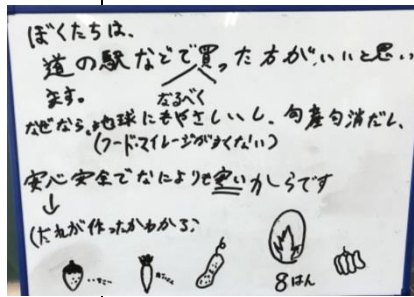 ぼくたちは、
道の駅などで買った方が、いいと思い
ます。
なるべく
なぜなら、地球にもやさしいし、旬産旬消だし、
(フード・マイレージが多くない)
安心安全でなによりも安いからです
↓
(だれが作ったかわかる)
8はん